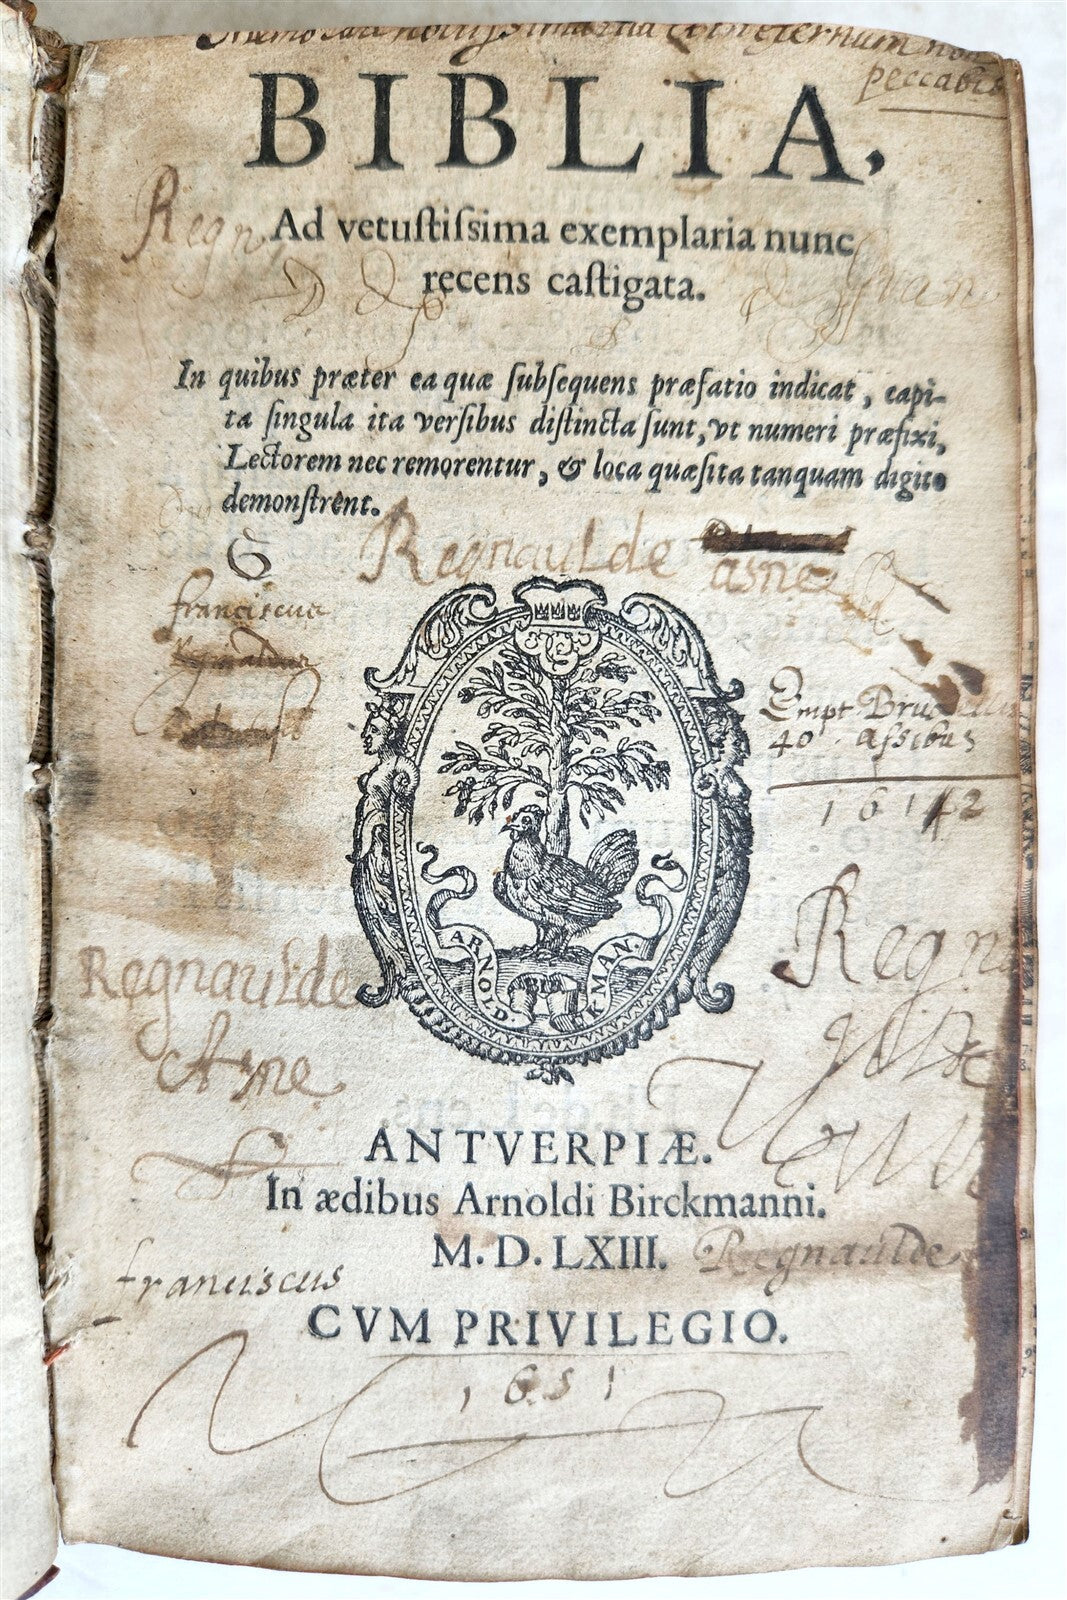 Memorare novissima tua et in eternum non
peccabis
BIBLIA,
Regn
Ad vetuſtiſsima exemplaria nunc
recens caſtigata.
In quibus præter ea quæ ſubſequens præfatio indicat, capi-
ta ſingula ita verſibus diſtincta ſunt, vt numeri præfixi,
Lectorem nec remorentur, & loca quæſita tanquam digito
demonſtrent.
Regnaulde
asne
franciscus
Empt Bruxellis
40 aſsibus
1642
ARNOLD.
BIR
KMAN.
Regnaulde
Asne
Regn
ANTVERPIÆ.
In ædibus Arnoldi Birckmanni.
M. D. LXIII.
Regnaulde
franciscus
CVM PRIVILEGIO.
1651